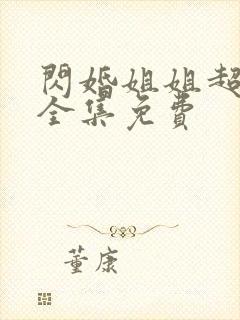 閃婚姐姐超
全集免費
董康